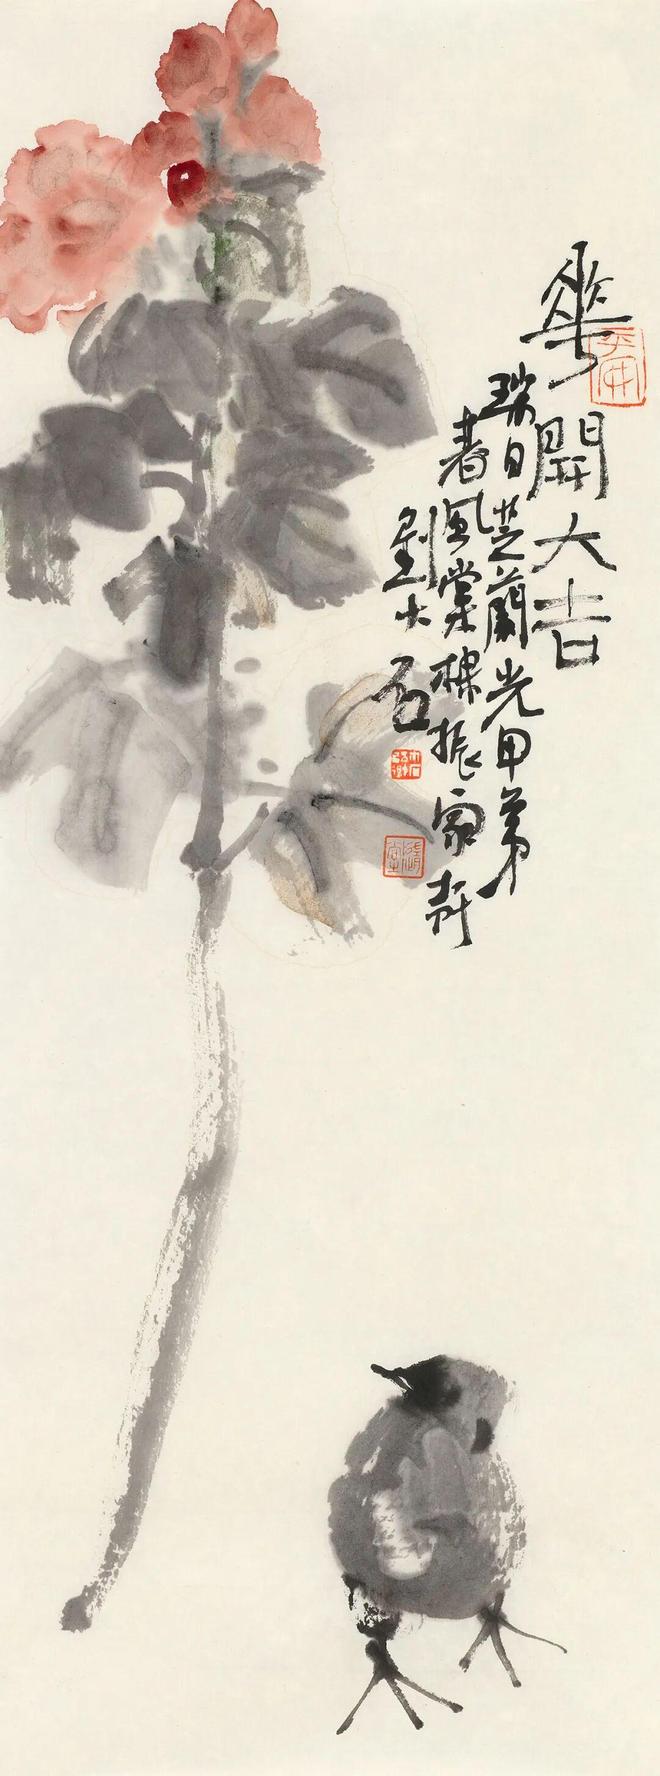 華開大吉
瑞日芝蘭光甲第
春風棠棣振家声
劉大石